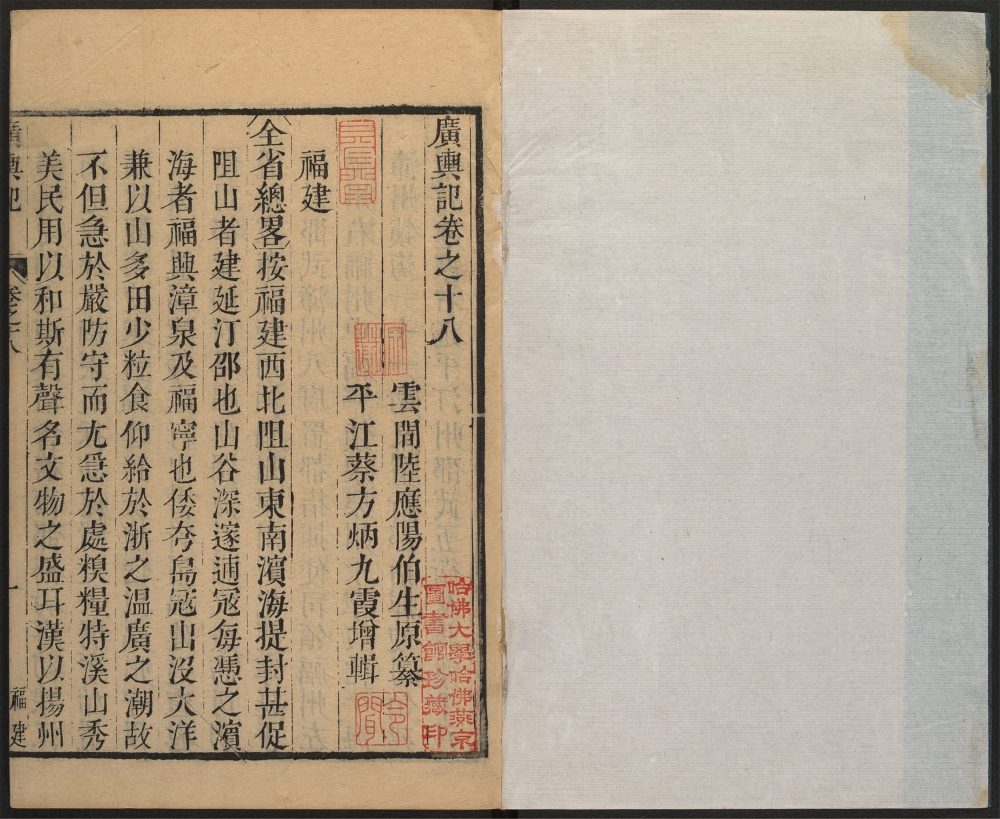 廣輿記卷之十八
雲間陸應陽伯生原纂
平江蔡方炳九霞增輯
福建
全省總畧按福建西北阻山東南濵海提封甚促
阻山者建延汀邵也山谷深邃逋冦每憑之濵
海者福興漳泉及福寧也倭夸島冦出没大洋
兼以山多田少粒食仰給於浙之温廣之潮故
不但急於嚴防守而尤急於處糗糧特溪山秀
美民用以和斯有聲名文物之盛耳漢以揚州
廣輿記
卷之十八
一
福建
哈佛大學哈佛燕京
圖書館珍藏印